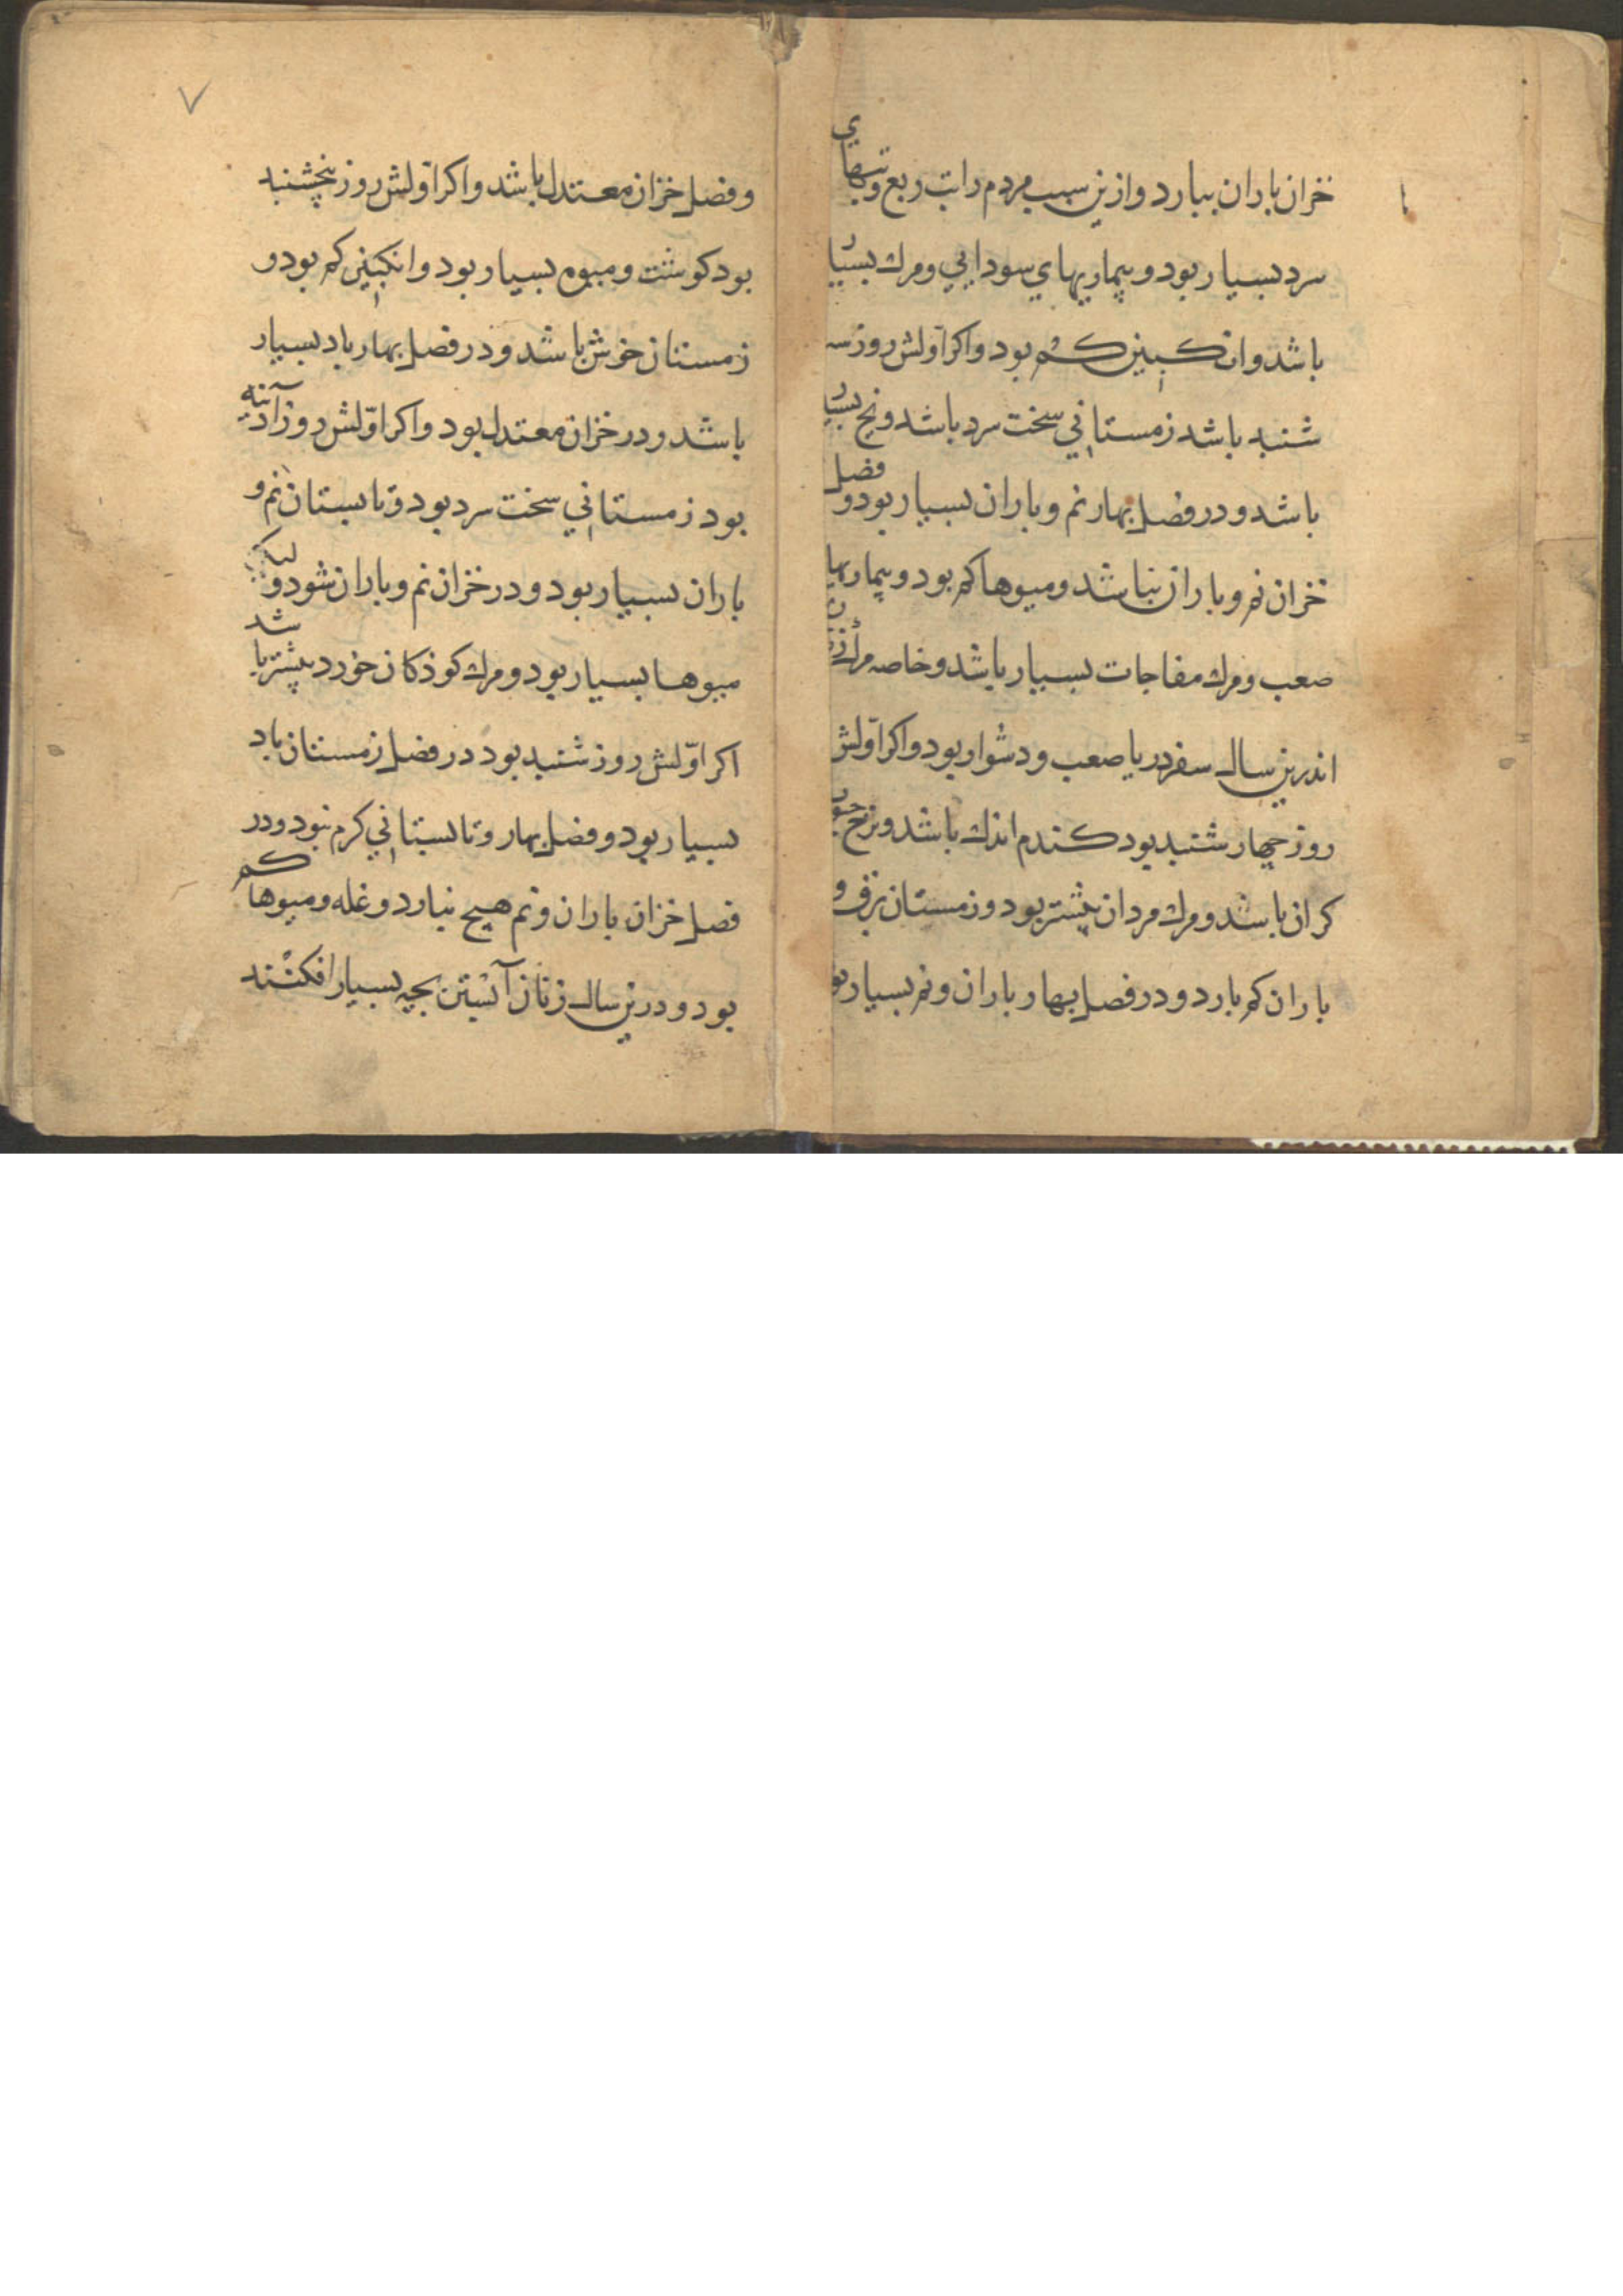 خزان باران ببارد و ازین سبب مردم را تب ربع و تبهای
سرد بسیار بود و بیماریهای سودایی و مرك بسیار
باشد و انکبین کم بود و اکر اوّلش روز سه
شنبد باشد زمستانی سخت سرد باشد و یخ بسیار
باشد و در فصل بهار نم و باران بسیار بود و فصل
خزان نم و باران نباشد و میوها کم بود و بیماریها
صعب و مرك مفاجات بسیار باشد و خاصه مرك زنان
اندرین سال سفر دریا صعب و دشوار بود و اکر اوّلش
روز چهارشنبد بود کندم اندك باشد و نرخ
کران باشد و مرك مردان بیشتر بود و زمستان برف و
باران کم بارد و در فصل بهار باران و نم بسیار بود
۷
و فصل خزان معتدل باشد و اکر اوّلش روز پنجشنبد
بود کوشت و میوه بسیار بود و انکبین کم بود و
زمستان خوش باشد و در فصل بهار باد بسیار
باشد و در خزان معتدل بود و اکر اوّلش روز آدینه
بود زمستانی سخت سرد بود و تابستان نم و
باران بسیار بود و در خزان نم و باران شود و لیکن
میوها بسیار بود و مرك کوذکان خورد بیشتر باشد
اکر اوّلش روز شنبد بود در فصل زمستان باد
بسیار بود و فصل بهار و تابستانی کرم بود و در
فصل خزان باران و نم هیچ نبارد و غله و میوها کم
بود و درین سال زنان آبستن بچه بسیار افکنند